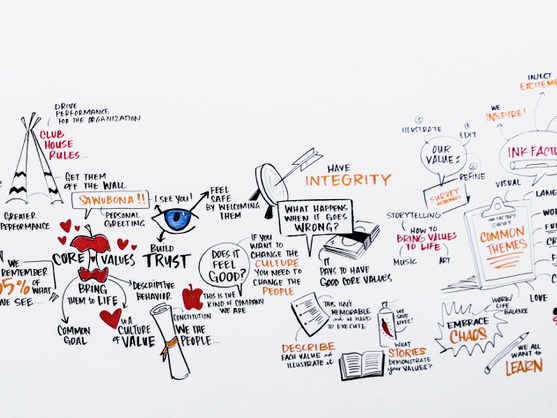 DRIVE
PERFORMANCE
FOR THE ORGANIZATION
CLUB
HOUSE
RULES...
GET THEM
OFF THE WALL
GREATER
PERFORMANCE
SAWUBONA!!
PERSONAL
GREETING
I SEE YOU!
FEEL
SAFE
BY WELCOMING
THEM
BUILD
TRUST
WE
REMEMBER
65% OF
WHAT
WE SEE...
CORE VALUES
BRING
THEM to LIFE
DESCRIPTIVE
BEHAVIOR.
COMMON
GOAL
is a
CULTURE
of VALUE
THIS IS THE
KIND of COMPANY
WE ARE
CONSTITUTION
WE THE
PEOPLE...
DOES IT
FEEL
GOOD?
IF YOU
WANT TO
CHANGE THE
CULTURE
YOU NEED TO
CHANGE THE
PEOPLE
HAVE
INTEGRITY
WHAT HAPPENS
WHEN IT GOES
WRONG?
IT
PAYS TO HAVE
GOOD CORE VALUES
THIS ISN'T
MEMORABLE
and is HARD
TO EXECUTE.
WE
SAVE
LIVES!
DESCRIBE
EACH VALUE and
ILLUSTRATE it
WHAT
STORIES
DEMONSTRATE
your VALUES?
ILLUSTRATE
EDIT
OUR
VALUES
REFINE
SURVEY
STORYTELLING
HOW to
BRING VALUES
TO LIFE
MUSIC
ART
WE
INSPIRE!
INJECT
EXCITEME
INK FACTO
VISUAL
LANG
INK FACTORY
SURVEY
COMMON
THEMES
WORK/
LIFE
BALANCE
LOVE
EMBRACE
CHAOS
WE ALL
WANT to
LEARN